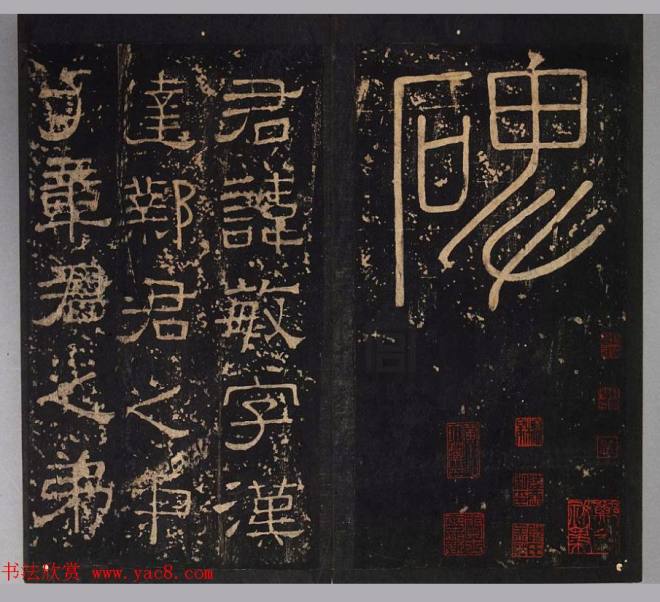 碑
君諱敏字漢
達鄴君之中
子章君之弟
书法欣赏 www.yac8.com